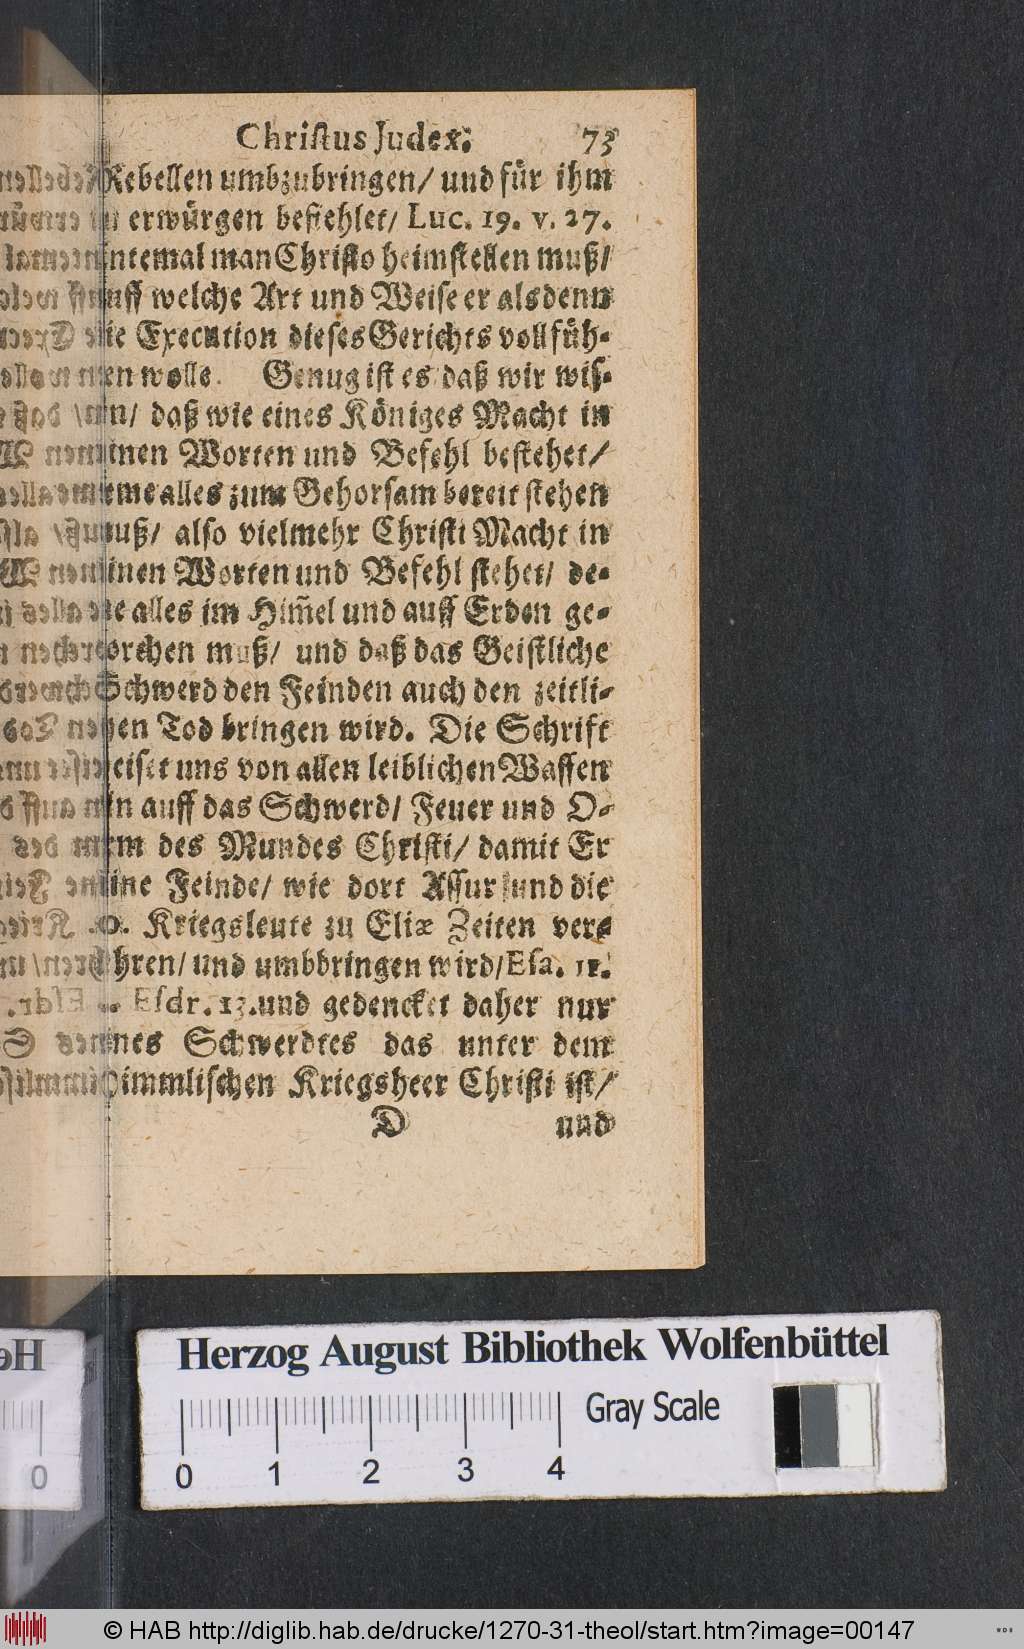 Christus Judex. 73
Rebellen umbzubringen/ und für ihm
erwürgen befiehlet/ Luc. 19. v. 27.
ntemal man Christo heimstellen muß/
uff welche Art und Weise er als denn
ie Execution dieses Gerichts vollfüh-
en wolle. Genug ist es daß wir wis-
n/ daß wie eines Königes Macht in
inen Worten und Befehl bestehet/
me alles zum Gehorsam bereit stehen
uß/ also vielmehr Christi Macht in
inen Worten und Befehl stehet/ de-
e alles im Him̃el und auff Erden ge-
orchen muß/ und daß das Geistliche
Schwerd den Feinden auch den zeitli-
hen Tod bringen wird. Die Schrift
eiset uns von allen leiblichen Waffen
n auff das Schwerd/ Feuer und O-
m des Mundes Christi/ damit Er
ine Feinde/ wie dort Assur und die
o. Kriegsleute zu Eliæ Zeiten ver-
hren/ und umbbringen wird/ Esa. 11.
Esdr. 13. und gedencket daher nur
nes Schwerdtes das unter dem
immlischen Kriegsheer Christi ist/
D und
Herzog August Bibliothek Wolfenbüttel
Gray Scale
0 1 2 3 4
© HAB http://diglib.hab.de/drucke/1270-31-theol/start.htm?image=00147